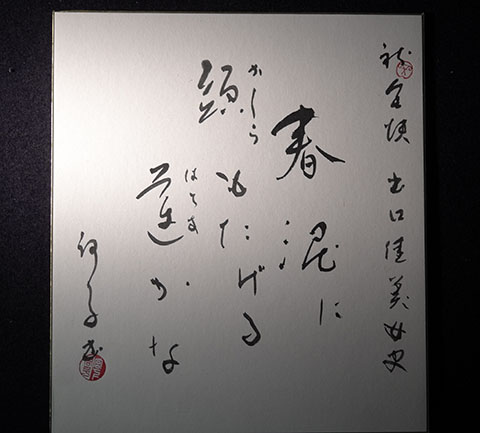 祝 出口佳美女史
春泥に
かしら
頭もたげる
はちす
蓮かな